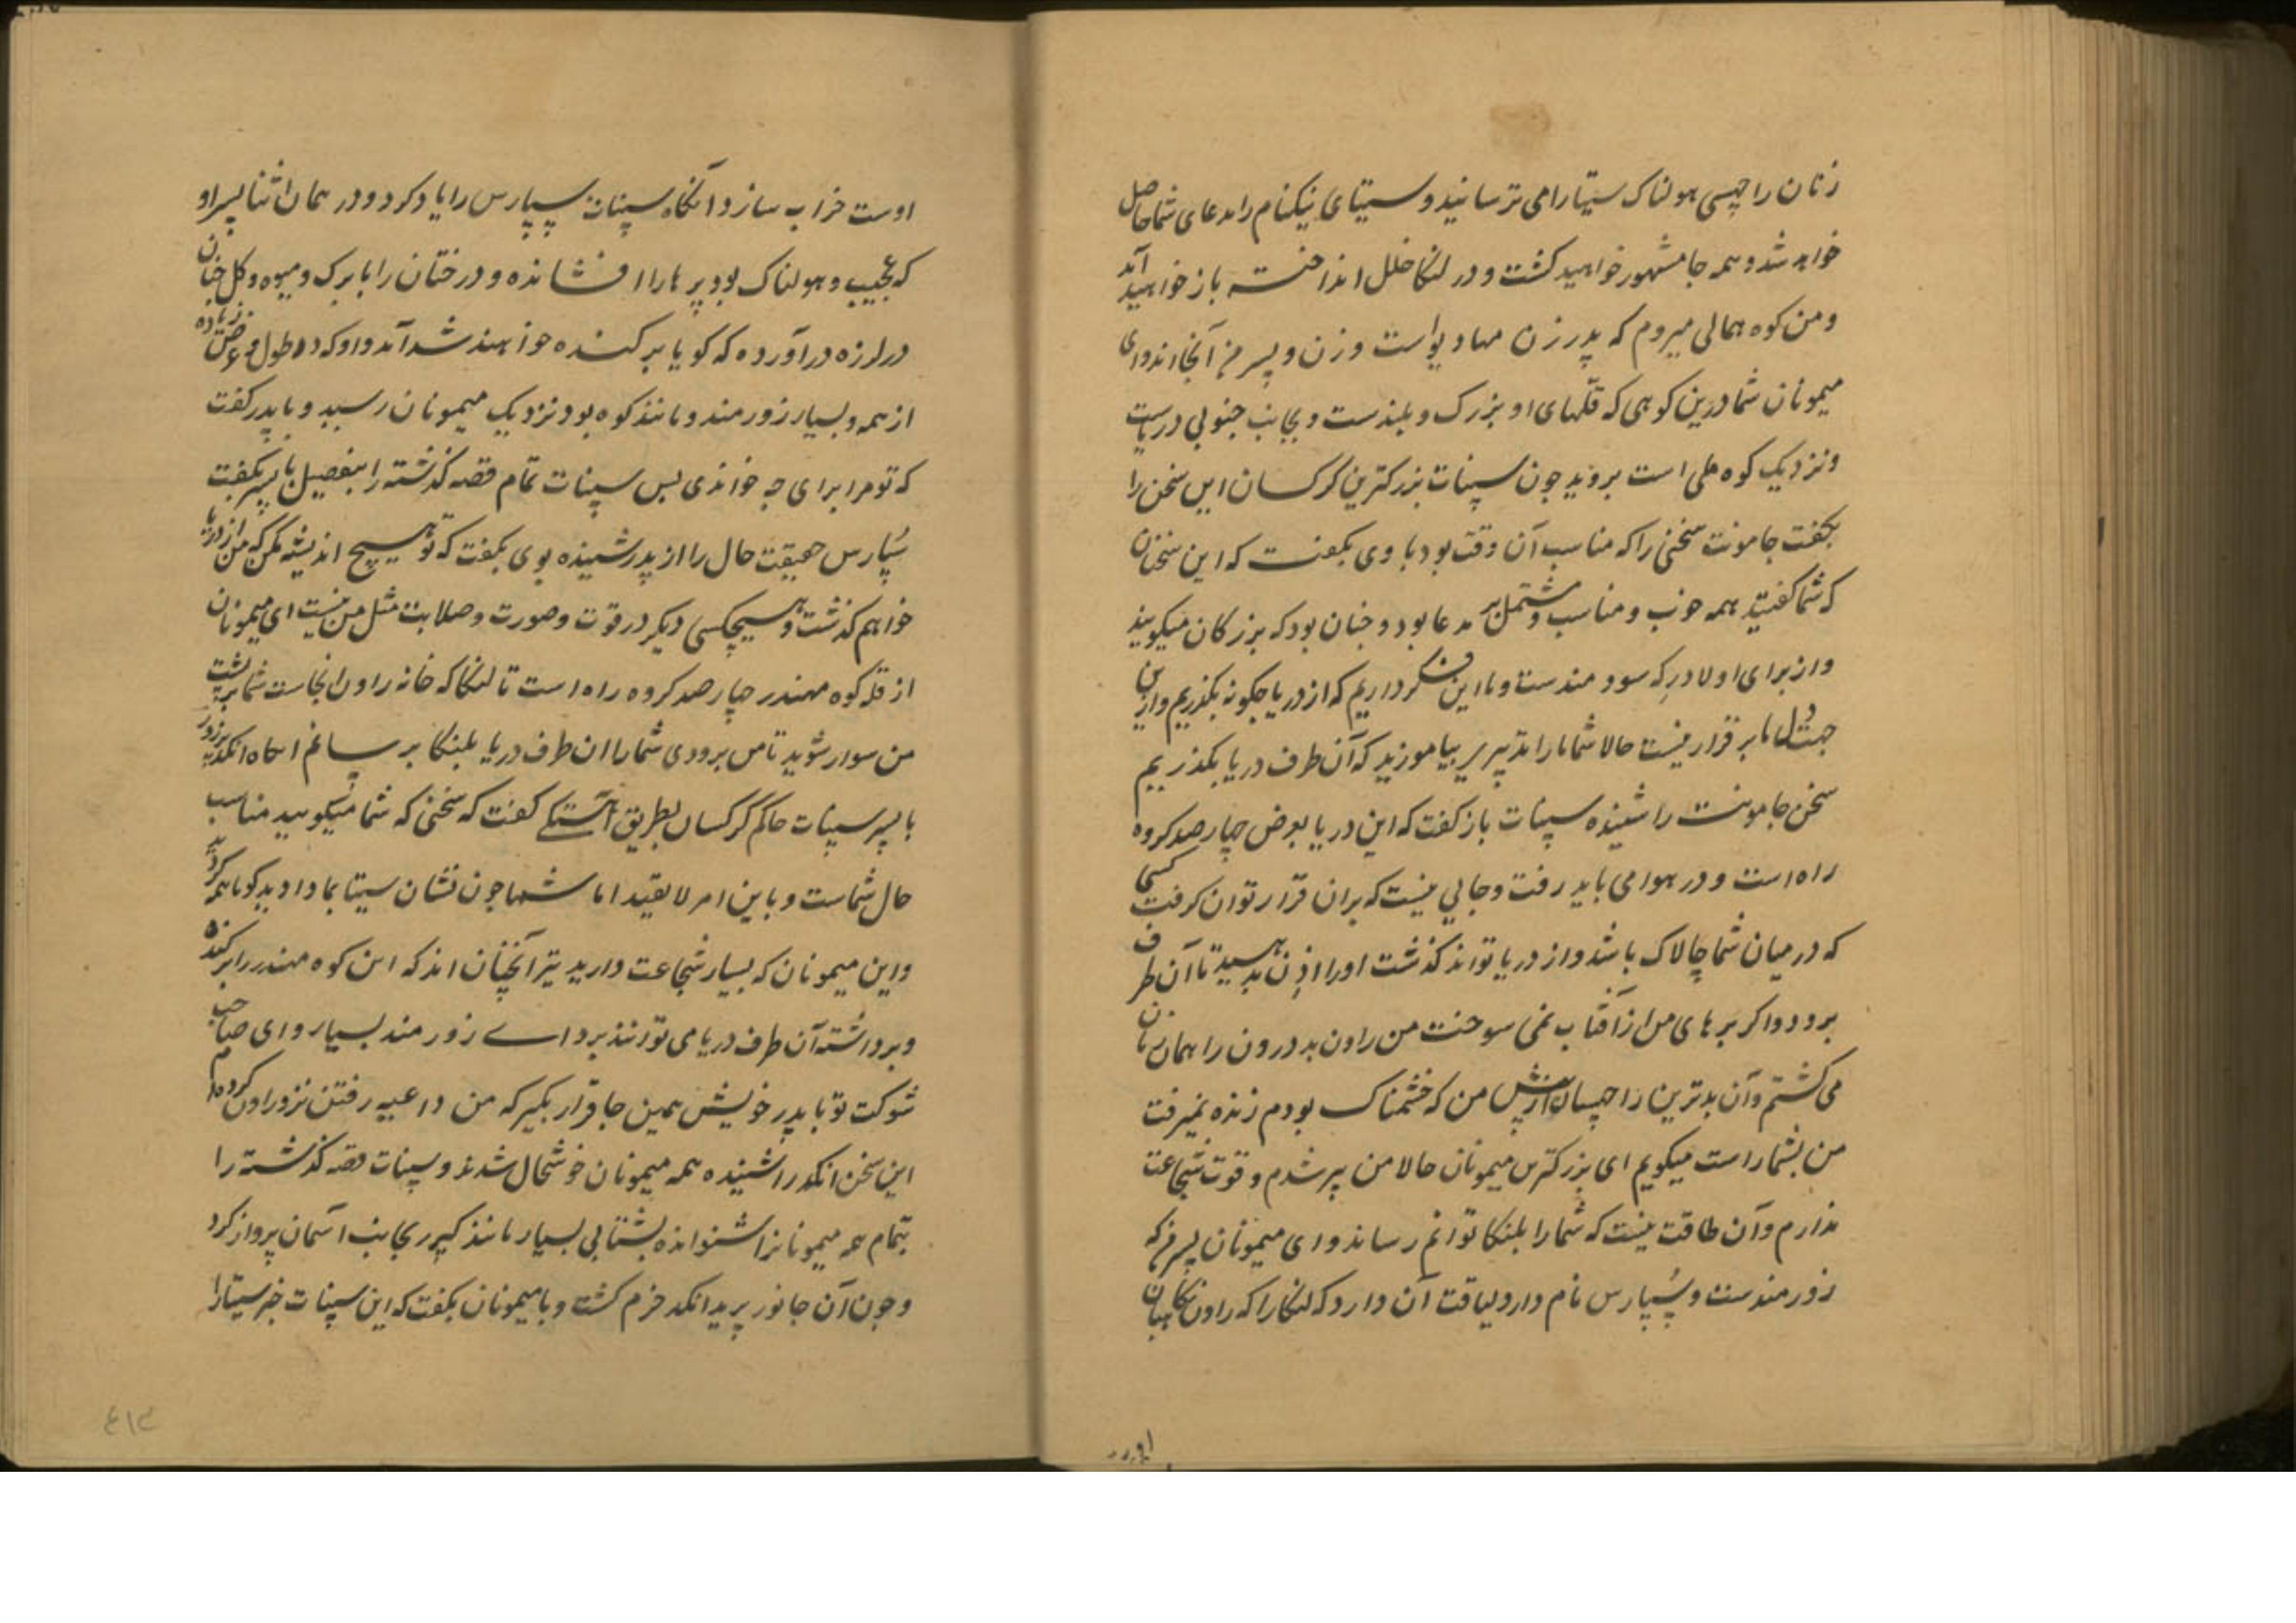 زنان راچهسی هولناک سیتا را می ترسانید و سیتای نیکنام را مدعای شما حاصل
خواهد شد و همه جا مشهور خواهید کشت و در لنکا خلل انداخته باز خواهید آمد
و من کوه همالی میروم که پدر زن مهادیو است و زن و پسر من آنجا اند و ای
میمونان شما درین کوهی که قلهای او بزرک و بلندست و بجانب جنوبی دریاست
و نزدیک کوه ملی است بروید چون سپنات بزرکترین کرکسان این سخن را
بکفت جامونت سخنی را که مناسب آن وقت بود با وی بکفت که این سخنان
که شما کفتید همه خوب و مناسب و مشتمل بر مدعا بود و چنان بود که بزرکان میکویند
و از برای اولاد در که سودمندست و ما این فکر داریم که از دریا چکونه بکذریم و ازین
جهت دل ما بر قرار نیست حالا شما ما را تدبیر بیاموزید که آن طرف دریا بکذریم
سخن جامونت را شنیده سپنات باز کفت که این دریا بعرض چهار صد کروه
راه است و در هوا می باید رفت و جایی نیست که بران قرار توان کرفت کسی
که در میان شما چالاک باشد و از دریا تواند کذشت او را اذن بدهید تا آن طرف
برود و اکر پرهای من از آفتاب نمی سوخت من راون بد درون را همان زمان
می کشتم و آن بدترین راچهسان از پیش من که خشمناک بودم زنده نمیرفت
من بشما راست میکویم ای بزرکترین میمونان حالا من پیر شدم و قوت شجاعت
ندارم و آن طاقت نیست که شما را بلنکا توانم رساند و ای میمونان پسر من که
زورمندست و سُپارس نام دارد لیاقت آن دارد که لنکا را که راون نکاهبان
اوست خراب سازد آنکاه سپنات سپارس را یاد کرد و در همان اثنا پسر او
که عجیب و هولناک بود پرها را افشانده و درختان را با برک و میوه و کل چنان
در لرزه در آورده که کویا برکنده خواهند شد آمد و او که در طول و عرض زیاده
از همه و بسیار زورمند و مانند کوه بود نزدیک میمونان رسید و با پدر کفت
که تو مرا برای چه خواندی پس سپنات تمام قصه کذشته را بتفصیل با پسر بکفت
سُپارس حقیقت حال را از پدر شنیده بوی بکفت که تو هیچ اندیشه مکن که من از دریا
خواهم کذشت و هیچکسی دیکر در قوت و صورت و صلابت مثل من نیست ای میمونان
از قله کوه مهندر چهار صد کروه راه است تا لنکا که خانه راون انجاست شما بر پشت
من سوار شوید تا من بزودی شما را ان طرف دریا بلنکا برسانم انکاه انکد بزور
با پسر سپنات حاکم کرکسان بطریق آهستکی کفت که سخنی که شما میکویید مناسب
حال شماست و باین امر لایقید اما شما چون نشان سیتا بما دادید کویا همه کردید
و این میمونان که بسیار شجاعت دارید نیز آنچنان اند که این کوه مهندر را برکنده
و برداشته آن طرف دریا می توانند برد ای زورمند بسیار و ای صاحب
شوکت تو با پدر خویش همین جا قرار بکیر که من داعیه رفتن نزد راون کرده ام
این سخن انکد را شنیده همه میمونان خوشحال شدند و سپنات قصه کذشته را
بتمام همه میمونانرا شنوانده بشتابی بسیار مانند کپر بجانب آسمان پرواز کرد
و چون آن جانور پرید انکد خرم کشت و با میمونان بکفت که این سپنات خبر سیتا را